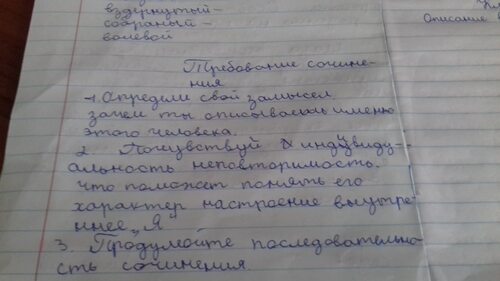 вздернутый-
собраный-
волевой
Описание
Требование сочине-
ния
1. Определи свой замысел
зачем ты описываешь именно
этого человека.
2. Почувствуй индивиду-
альность неповторимость.
что поможет понять его
характер настроение внутре-
ннее „Я"
3. Продумайте последовательно-
сть сочинения